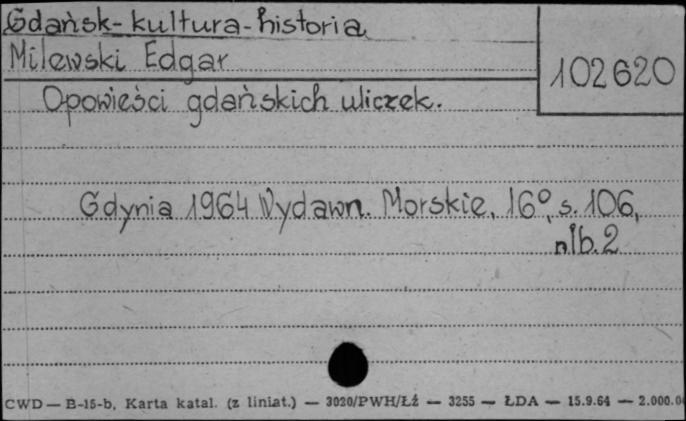 Gdańsk-kultura-historia
Milewski Edgar
102620
Opowieści gdańskich uliczek.
Gdynia 1964 Wydawn. Morskie, 16°, s. 106,
nlb. 2
CWD — B-15-b, Karta katal. (z liniat.) — 3020/PWH/Łź — 3255 — ŁDA — 15.9.64 — 2.000.0